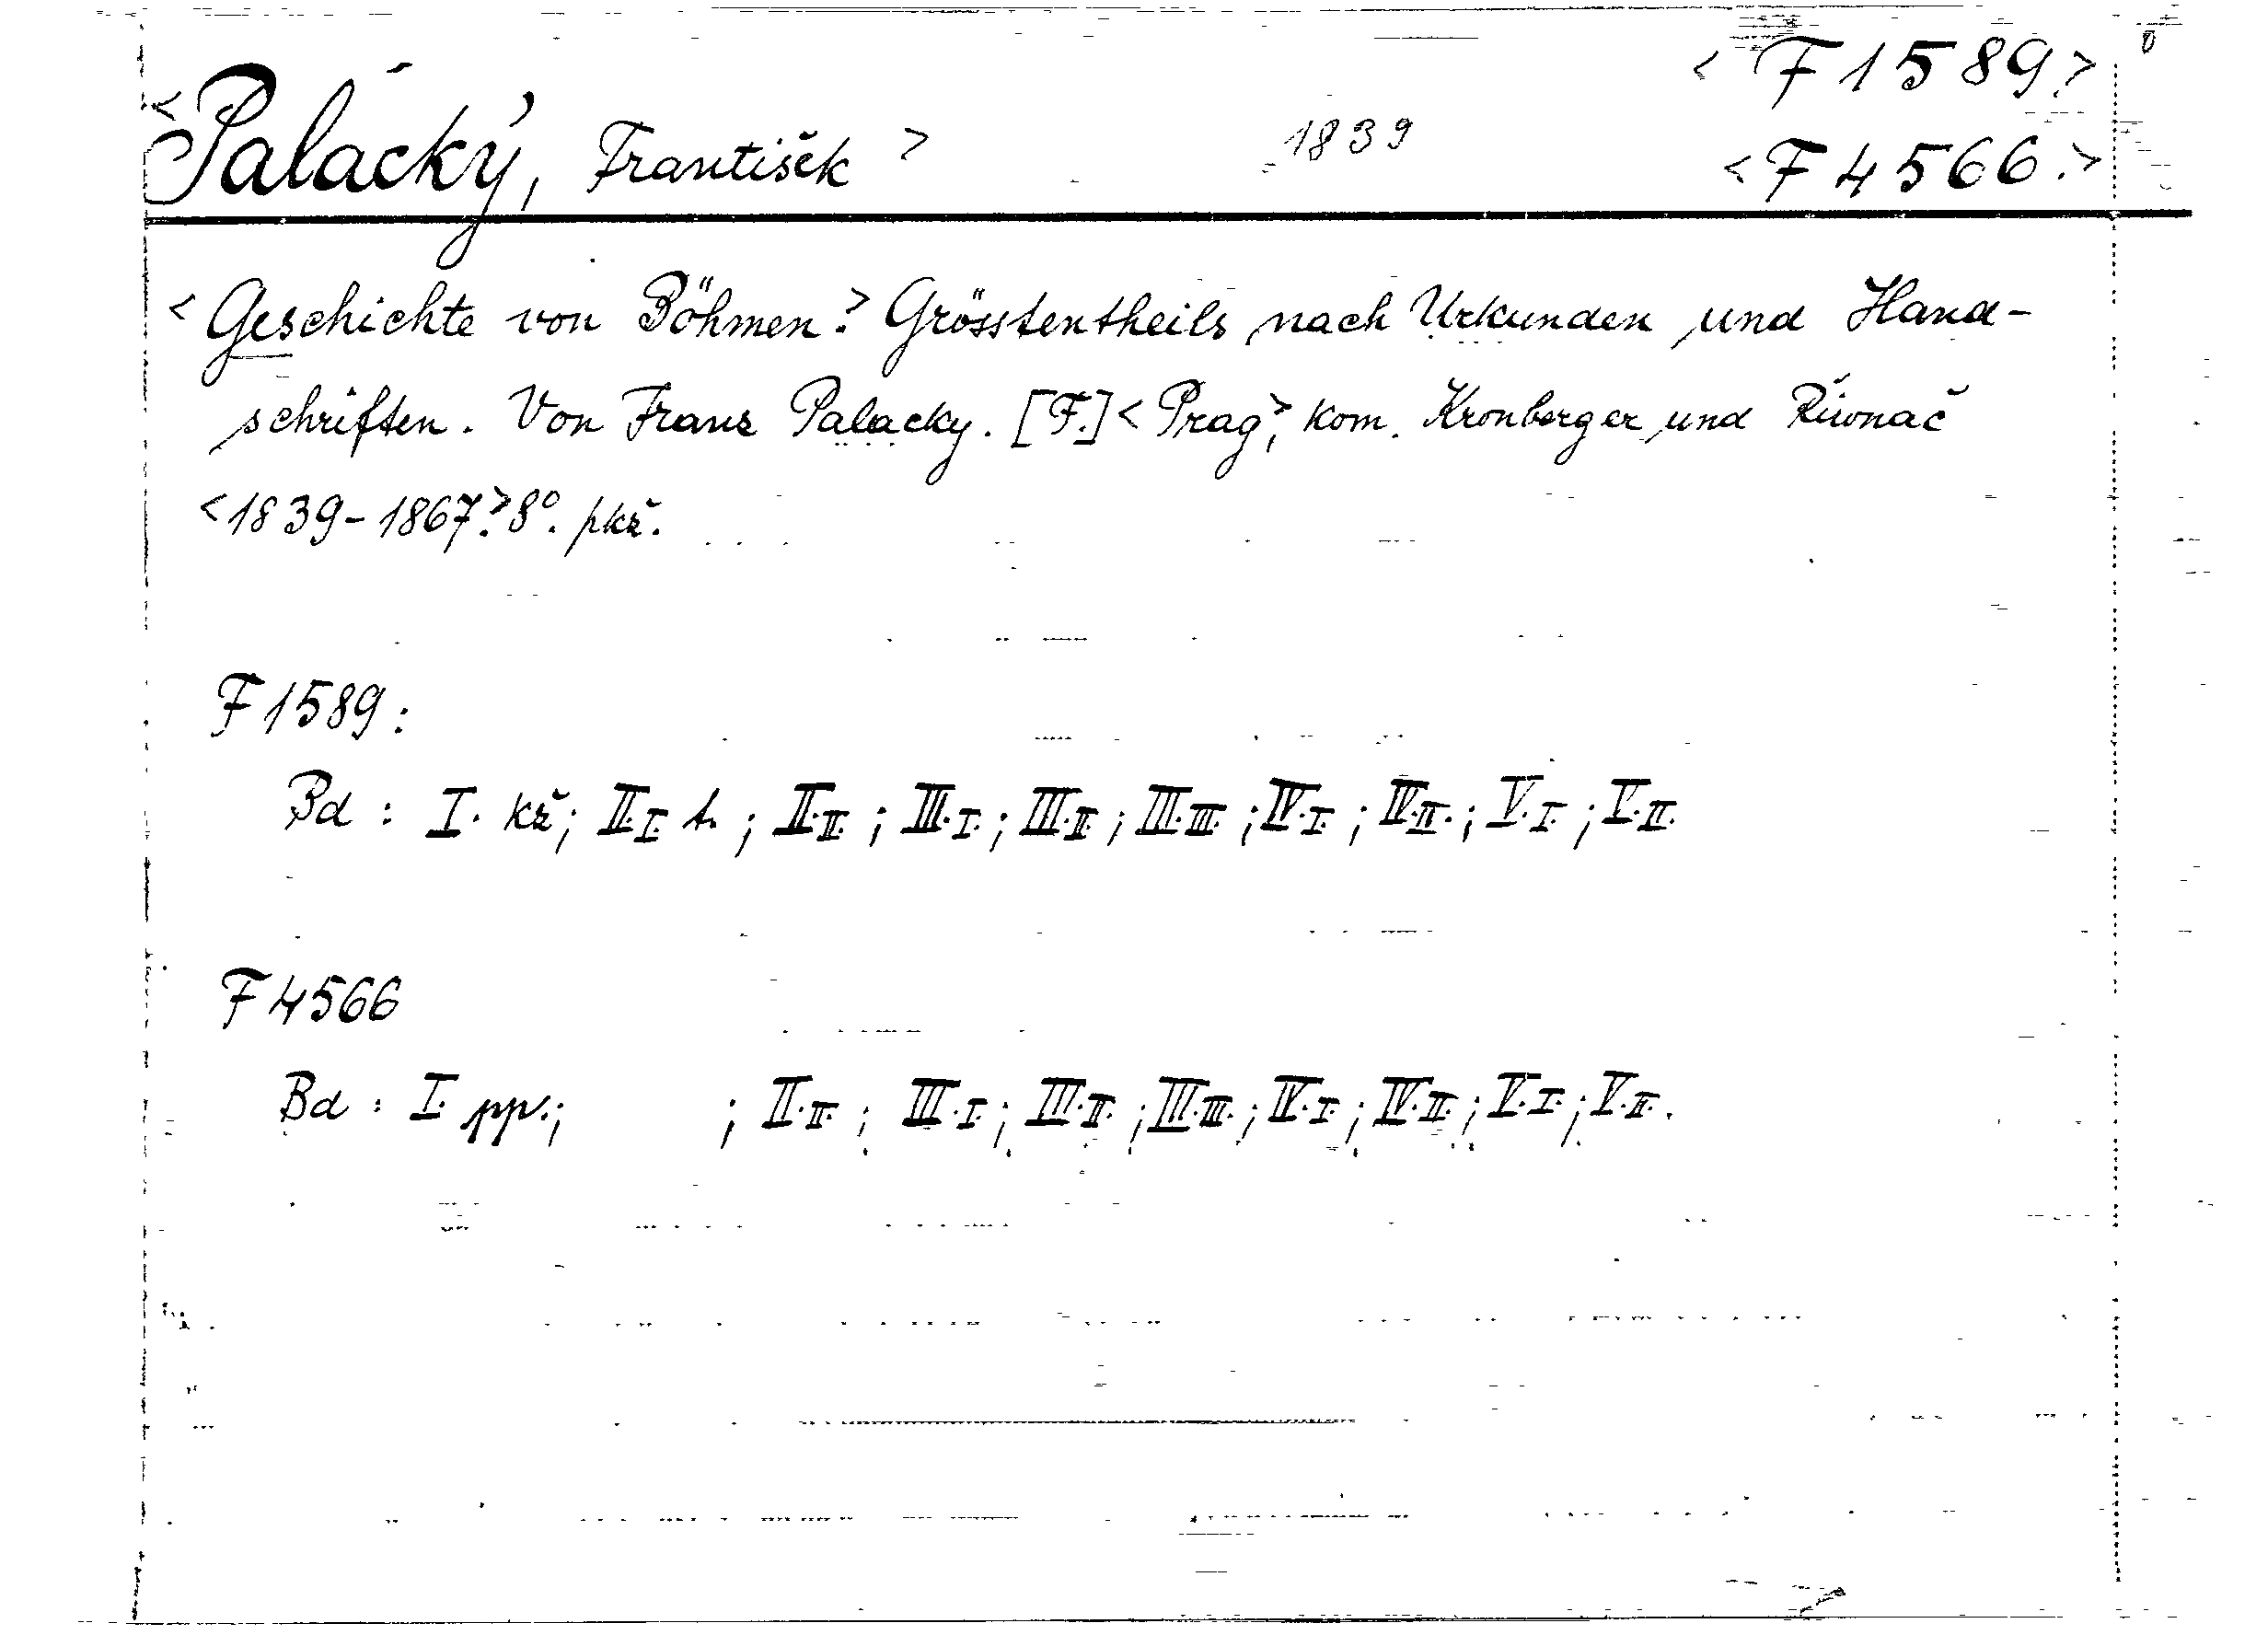 < F 1589 >
< Palacký, František > 1839 < F 4566. >
< Geschichte von Böhmen. > Grösstentheils nach Urkunden und Hand-
schriften. Von Franz Palacky. [F.] < Prag >, kom. Kronberger und Řiwnač
< 1839-1867. > 8°. pkž.
F 1589 :
Bd : I. kž ; II.I. t. ; II.II. ; III.I. ; III.II. ; III.III. ; IV.I. ; IV.II. ; V.I. ; V.II.
F 4566
Bd : I. pp. ; ; II.II. ; III.I. ; III.II. ; III.III. ; IV.I. ; IV.II. ; V.I. ; V.II.